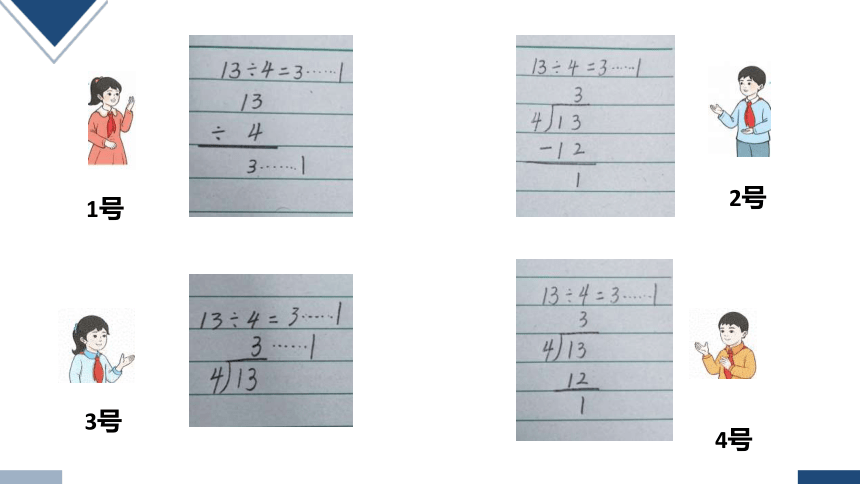 13÷4=3……1
13
÷ 4
3……1
1号
13÷4=3……1
3
4)13
-12
1
2号
13÷4=3……1
3……1
4)13
3号
13÷4=3……1
3
4)13
12
1
4号